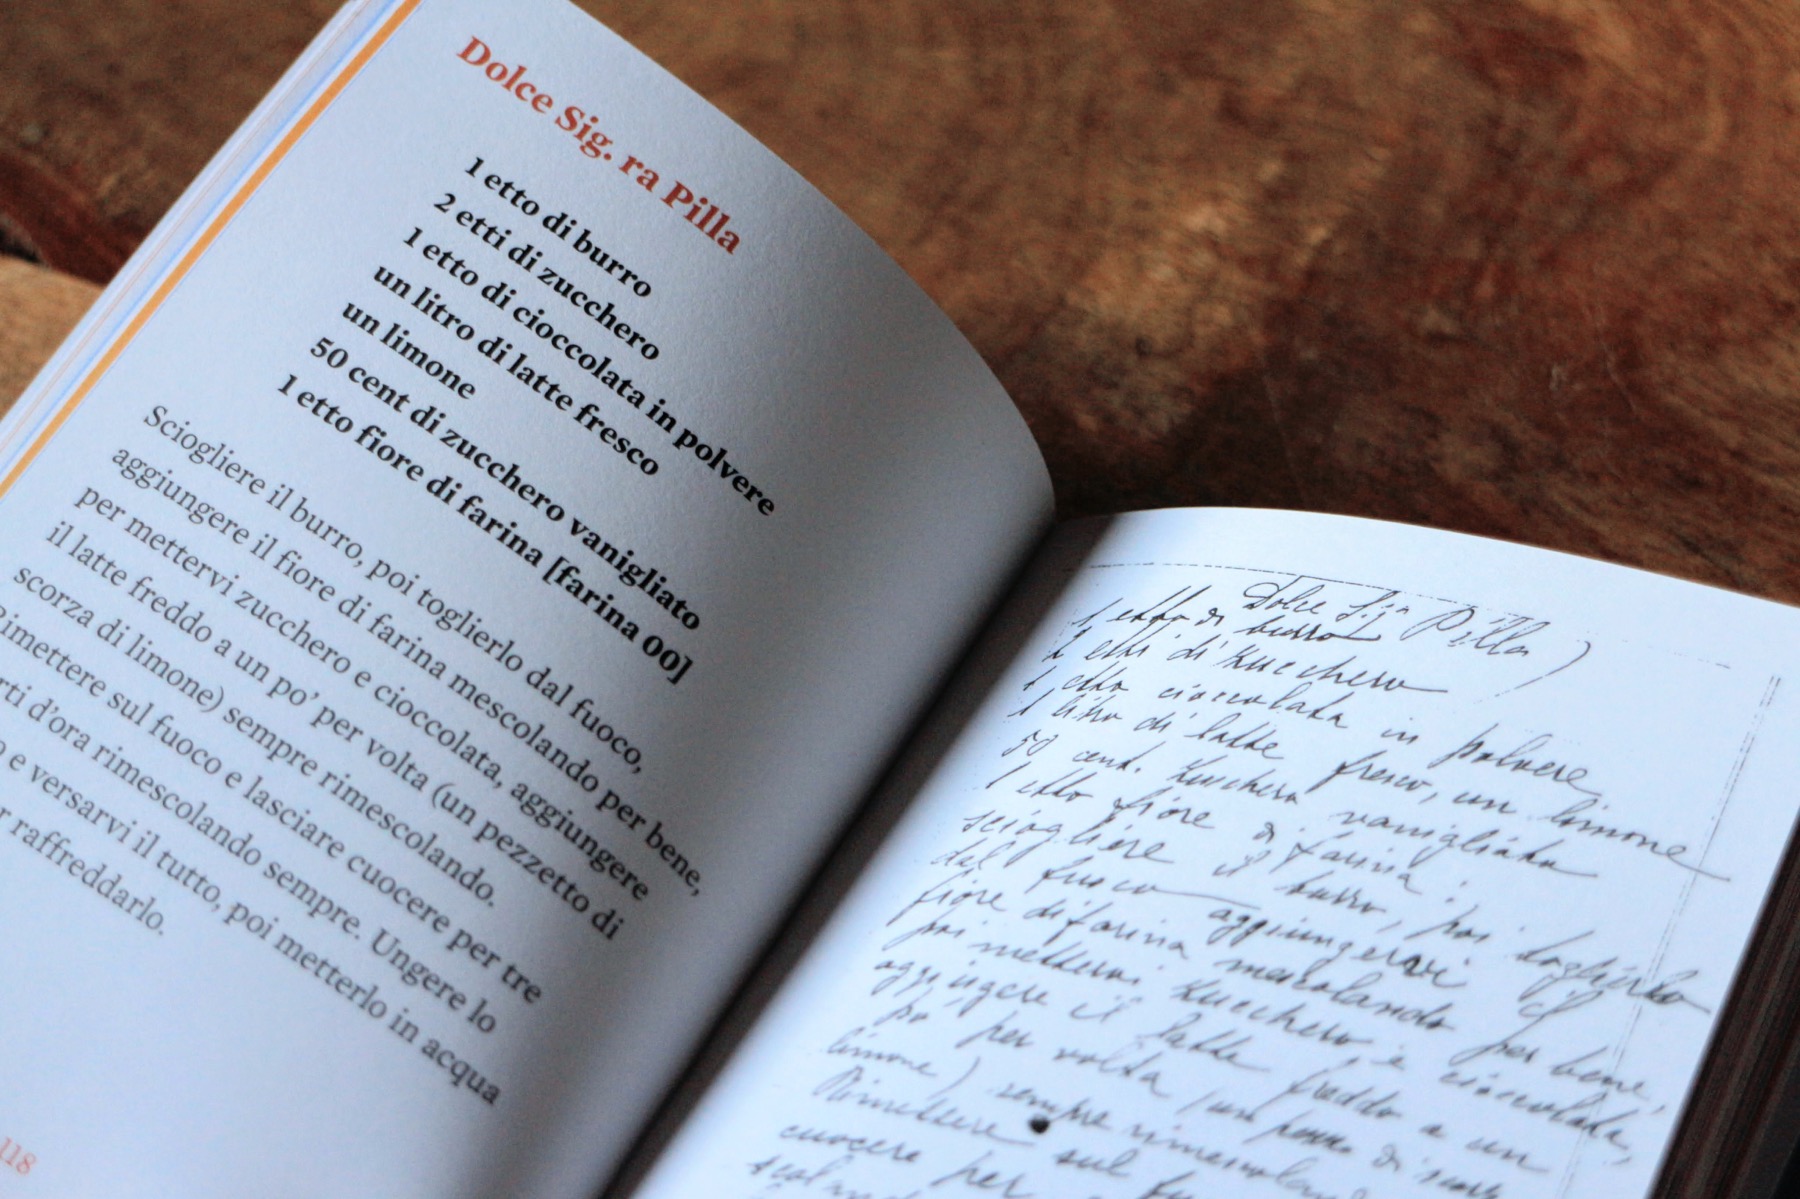 Dolce Sig. ra Pilla
1 etto di burro
2 etti di zucchero
1 etto di cioccolata in polvere
un litro di latte fresco
un limone
50 cent di zucchero vanigliato
1 etto fiore di farina [farina 00]
Sciogliere il burro, poi toglierlo dal fuoco,
aggiungere il fiore di farina mescolando per bene,
per mettervi zucchero e cioccolata, aggiungere
il latte freddo a un po’ per volta (un pezzetto di
scorza di limone) sempre rimescolando.
Rimettere sul fuoco e lasciare cuocere per tre
d’ora rimescolando sempre. Ungere lo
e versarvi il tutto, poi metterlo in acqua
raffreddarlo.
118
Dolce S.ra Pilla)
1 etto di burro
2 etti di zucchero
1 etto cioccolata in polvere
1 litro di latte fresco, un limone
50 cent. zucchero vanigliato
1 etto fiore di farina.
sciogliere il burro, poi toglierlo
dal fuoco aggiungervi il
fiore di farina mescolando per bene,
poi mettervi zucchero, e cioccolata,
aggiugere il latte freddo a un
po per volta (un pezzo di scorz
limone) sempre rimescolan
Rimettere sul fu
cuocere per